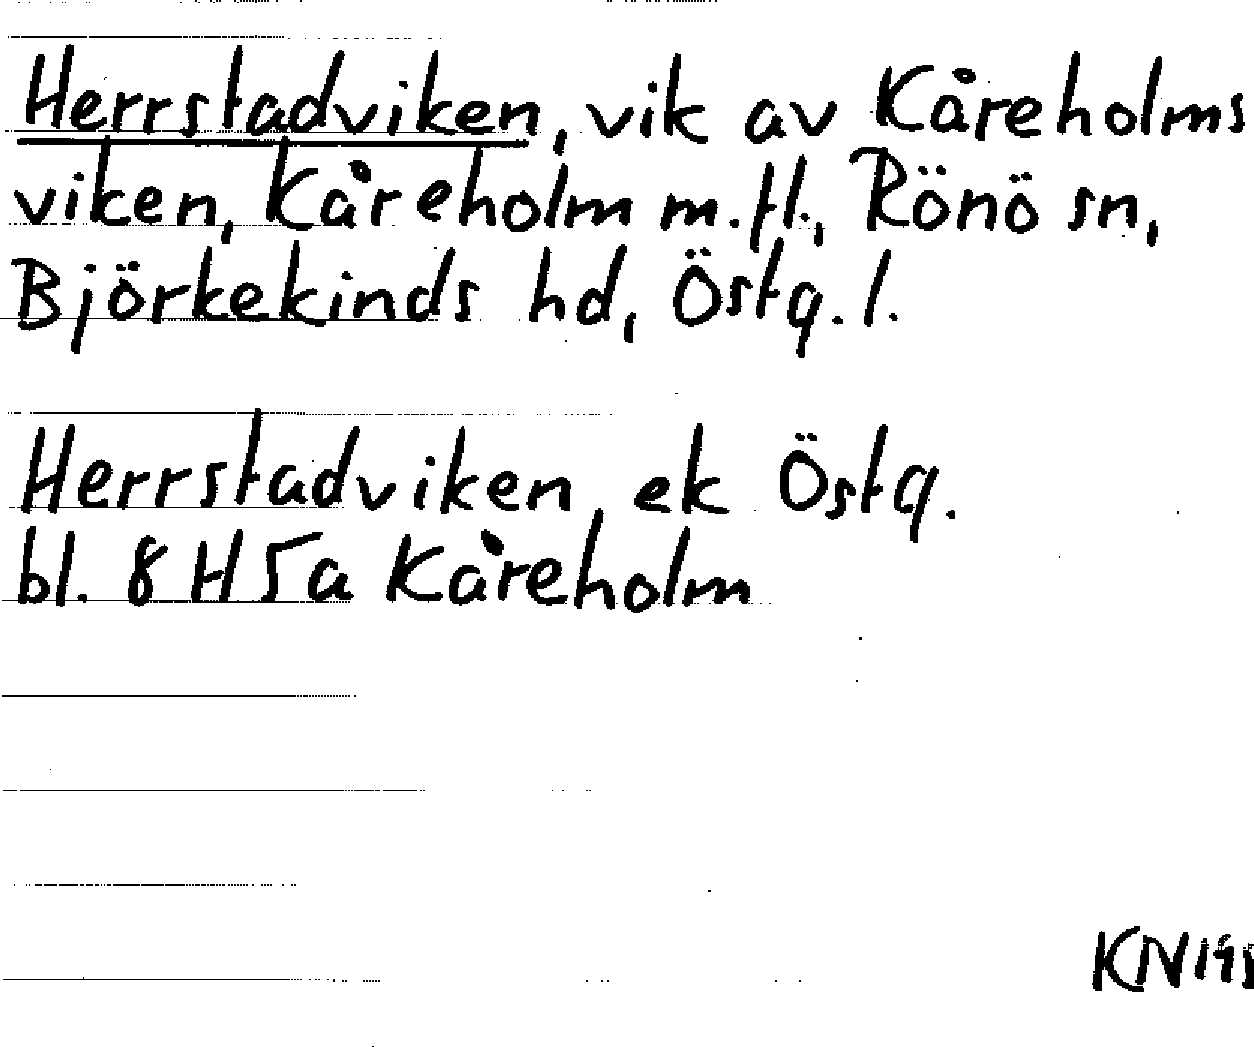 Herrstadviken, vik av Kåreholms
viken, Kåreholm m.fl., Rönö sn,
Björkekinds hd, Östg. l.
Herrstadviken, ek Östg.
bl. 8 H 5a Kåreholm